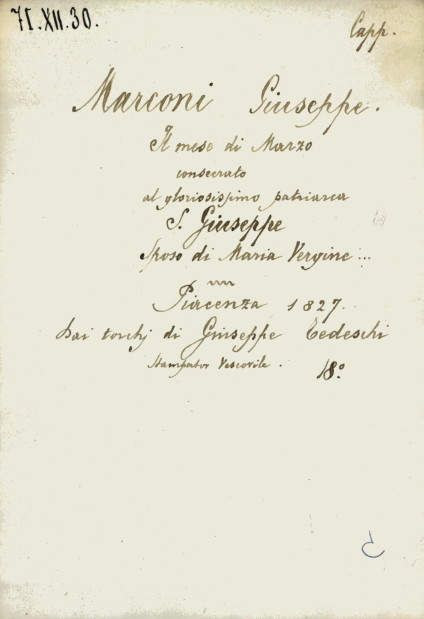 71.XII.30.
Capp.
Marconi Giuseppe.
Il mese di Marzo
consecrato
al gloriosissimo patriarca
S. Giuseppe
Sposo di Maria Vergine...
Piacenza 1827.
Dai torchj di Giuseppe Tedeschi
Stampator Vescovile. 18º